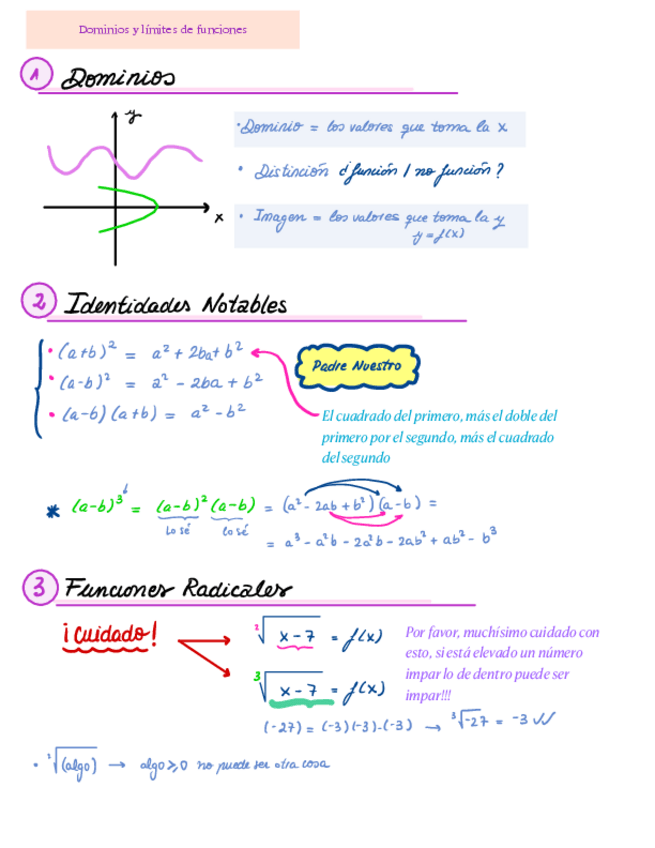 Dominios y límites de funciones
1 Dominios
y
x
• Dominio = los valores que toma la x
• Distinción d función / no función?
• Imagen = los valores que toma la y
y = f(x)
2 Identidades Notables
• (a+b)² = a² + 2ba + b²
• (a-b)² = a² - 2ba + b²
• (a-b)(a+b) = a² - b²
Padre Nuestro
El cuadrado del primero, más el doble del
primero por el segundo, más el cuadrado
del segundo
* (a-b)³ = (a-b)² (a-b) = (a² - 2ab + b²)(a - b) =
Lo sé lo sé
= a³ - a²b - 2a²b - 2ab² + ab² - b³
3 Funciones Radicales
¡Cuidado!
²√(x-7) = f(x)
³√(x-7) = f(x)
Por favor, muchísimo cuidado con
esto, si está elevado un número
impar lo de dentro puede ser
impar!!!
(-27) = (-3)(-3)·(-3) → ³√-27 = -3 √√
• ²√(algo) → algo ≥ 0 no puede ser otra cosa